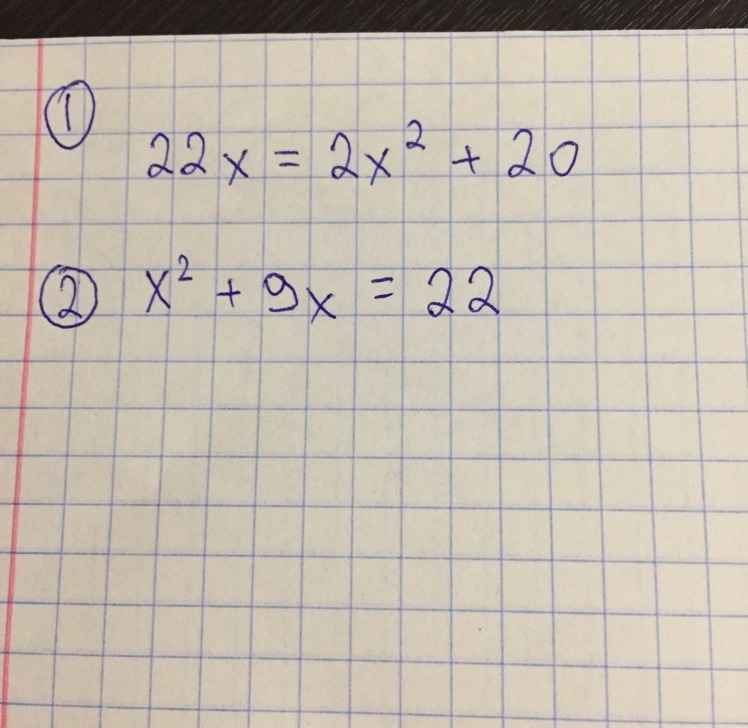 ① 22x = 2x² + 20
② x² + 9x = 22